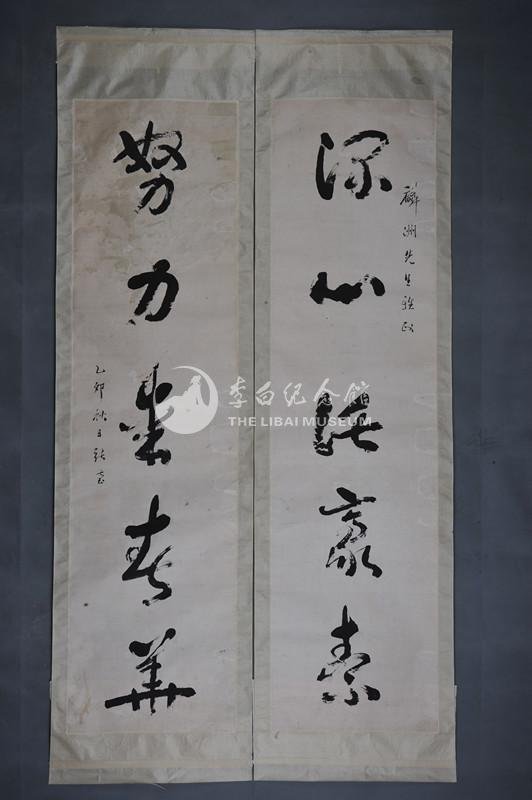 深心託豪素
洲先生雅政
努力愛春華
乙卯秋
李白纪念館
THE LIBAI MUSEUM